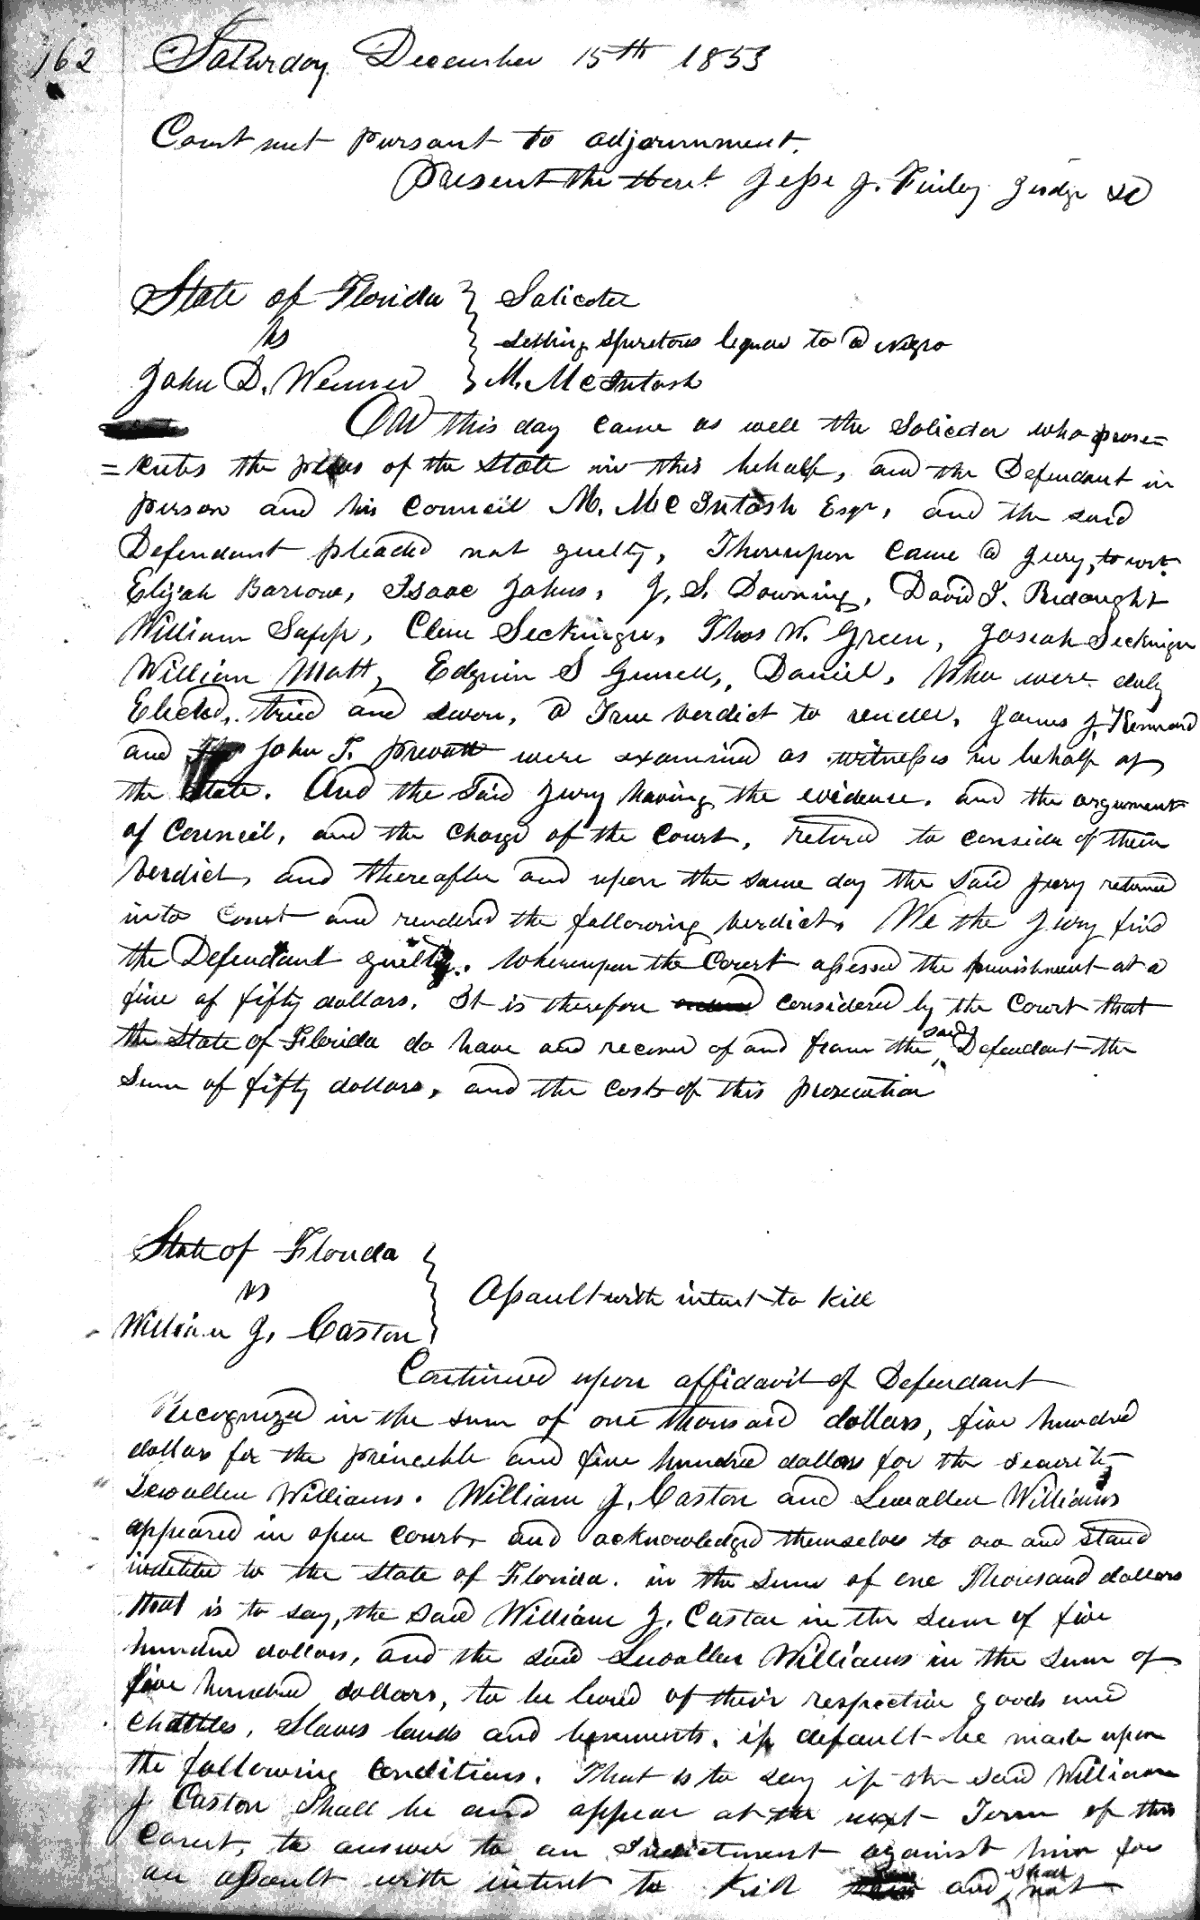 162 Saturday December 15th 1853
Court met pursuant to adjournment.
Present the Hon'l Jesse J. Finley Judge &c
State of Florida } Solicitor
vs } Selling spiretous liquor to a negro
John D. Weimer } M. McIntosh
On this day came as well the Solicitor who prose=
=cutes the pleas of the State in this behalf, and the Defendant in
person and his Council M. McIntosh Esqr, and the said
Defendant pleaded not guilty, Thereupon came a jury, to wit.
Elijah Barrow, Isaac Johns, J. S. Downing, David J.
William Sapp, Clem Seckinger, Thos W. Green, Josiah Seckinger
William Mott, S Daniel, Who were duly
Elected, tried and sworn, a True verdict to render, James J. Kennard
and John T. Prevatt were examined as witnesses in behalf of
the State. And the said Jury having the evidence, and the argument
of Council, and the charge of the Court, retired to consider of their
verdict, and thereafter and upon the same day the said jury returned
into Court and rendered the following verdict, We the Jury find
the Defendant guilty. Whereupon the Court assessed the punishment at a
fine of fifty dollars. It is therefore considered by the Court that
the State of Florida do have and recover of and from the said Defendant the
Sum of fifty dollars, and the costs of this prosecution
State of Florida }
vs } Assault with intent to Kill
William J. Caston }
Continued upon affidavit of Defendant
Recognized in the sum of one thousand dollars, five hundred
dollars for the princeble and five hundred dollars for the security
Lewallen Williams. William J. Caston and Lewallen Williams
appeared in open court, and acknowledged themselves to owe and stand
indebted to the State of Florida. in the sum of one Thousand dollars
that is to say, the said William J. Caston in the sum of five
hundred dollars, and the said Lewallen Williams in the sum of
five hundred dollars, to be levied of their respective goods and
chattles, Slaves lands and tenements, if default be made upon
the following conditions. That is to say if the said William
J Caston Shall be and appear at the next Term of this
Court, to answer to an Indictment against him for
an assault with intent to Kill and shall not